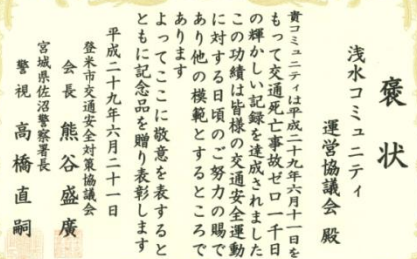 褒状
浅水コミュニティ
運営協議会 殿
貴コミュニティは平成二十九年六月十一日を
もって交通死亡事故ゼロ一千日
の輝かしい記録を達成されました
この功績は皆様の交通安全運動
に対する日頃のご努力の賜で
あり他の模範とするところで
あります
よってここに敬意を表すると
ともに記念品を贈り表彰します
平成二十九年六月二十一日
登米市交通安全対策協議会
会長 熊谷盛廣
宮城県佐沼警察署長
警視 高橋直嗣